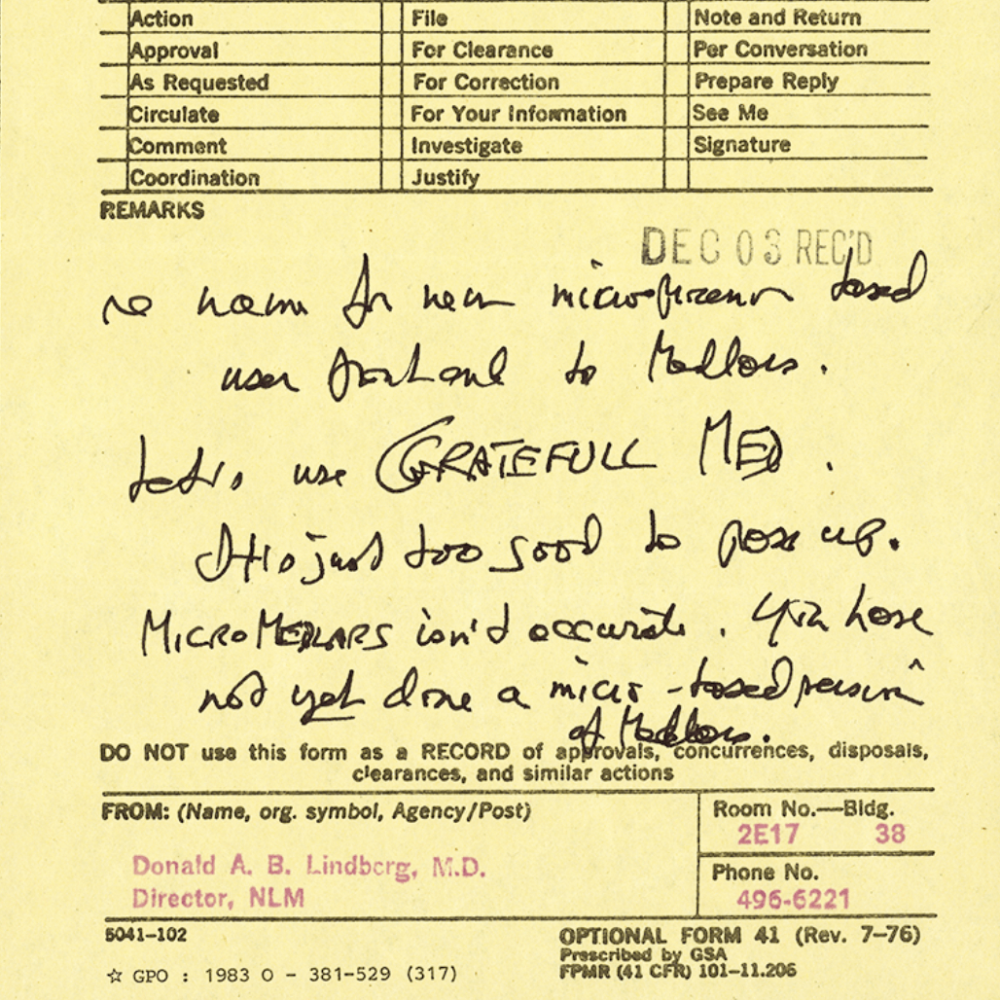 Action File Note and Return
Approval For Clearance Per Conversation
As Requested For Correction Prepare Reply
Circulate For Your Information See Me
Comment Investigate Signature
Coordination Justify
REMARKS
DEC 03 REC'D
re name for new microprocessor based
user front end to Medlars.
Let's use GRATEFULL MED.
It's just too good to pass up.
MICROMEDLARS isn't accurate. You have
not yet done a micro-based version
of Medlars.
DO NOT use this form as a RECORD of approvals, concurrences, disposals,
clearances, and similar actions
FROM: (Name, org. symbol, Agency/Post) Room No.—Bldg.
2E17 38
Donald A. B. Lindberg, M.D. Phone No.
Director, NLM 496-6221
5041-102 OPTIONAL FORM 41 (Rev. 7-76)
Prescribed by GSA
☆ GPO : 1983 O - 381-529 (317) FPMR (41 CFR) 101-11.206